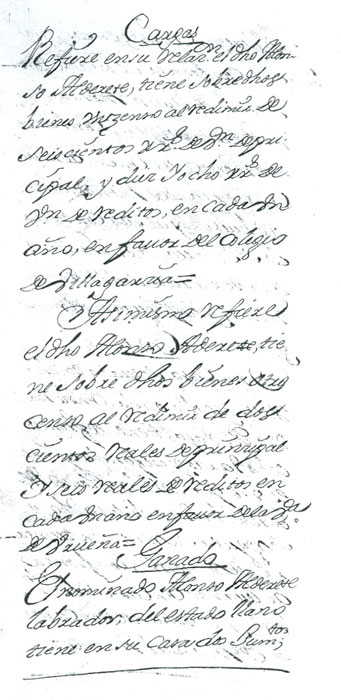 Cargas
Refiere en su Relazn. el dho Alon-
so Alderete, tiene sobre dhos
bienes un zenso al redimir de
seiscientos rrs. de Vn. de prin
cipal, y diez y ocho rrs. de
Vn. de reditos, en cada un
año, en favor del Colegio
de Villagarzia=
Asimismo refiere
el dho Alonso Alderete, tie-
ne sobre dhos bienes otro
censo al redimir de dos
cientos reales de principal
y seis reales de reditos en
cada un año en favor de la
de Urueña=
Ganado
El nominado Alonso Alderete
labrador, del estado llano
tiene en su Casa dos Jumtos;